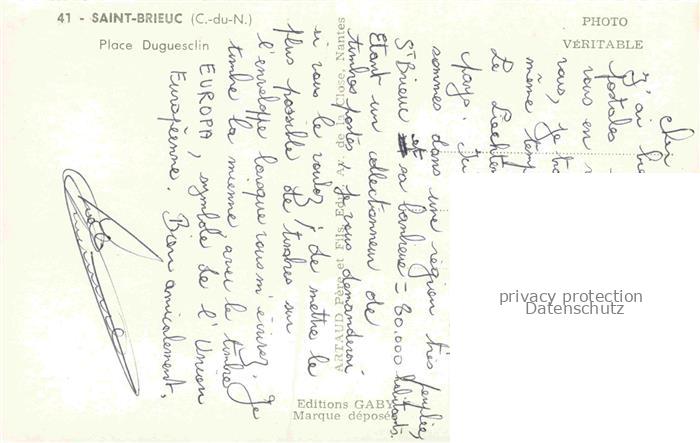 41 - SAINT-BRIEUC (C.-du-N.)
Place Duguesclin
PHOTO
VÉRITABLE
J'ai
postales
vous en
vous, je
même temp
Le Liechten
pays.
sommes dans une région très peuplée
St Brieuc et sa banlieue = 80.000 habitants.
Etant un collectionneur de
timbres postes, je vous demanderai
si vous le voulez ; de mettre le
plus possible de timbres sur
l'enveloppe lorsque vous m'écrirez. Je
timbre la mienne, avec le timbre
EUROPA, symbole de l'Union
Européenne. Bien amicalement,
ARTAUD Père et Fils, Edit., Av. de la Close, Nantes
Editions GABY
Marque déposée
privacy protection
Datenschutz